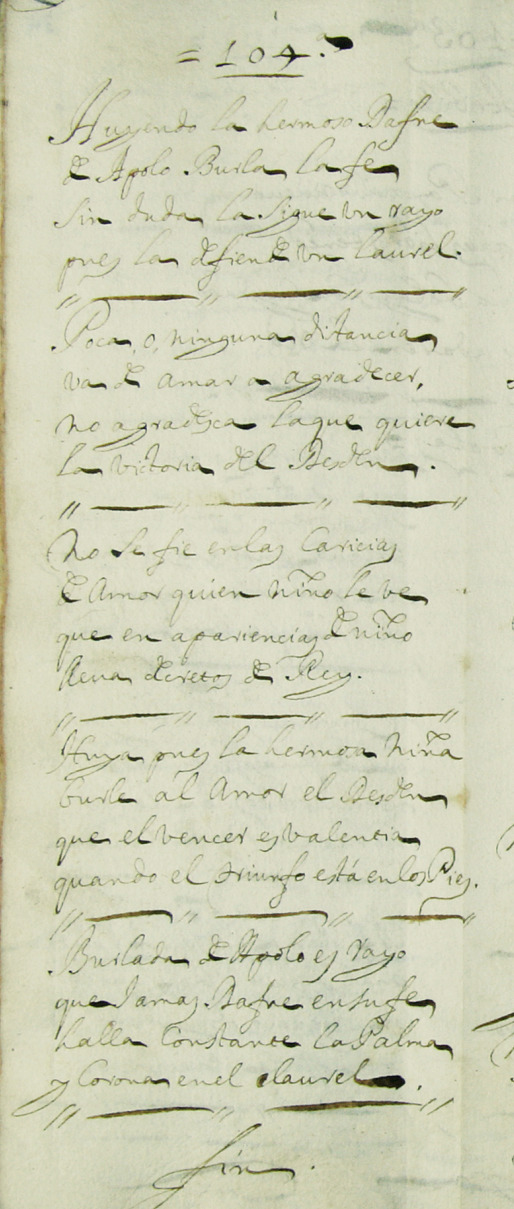 = 104.a
Huyendo la hermoso Dafne
de Apolo Burla la fe
sin duda la sigue vn rayo
pues la defiende vn laurel.
Poca, o, ninguna ditancia
va de amar a agradecer,
no agradesca la que quiere
la victoria del Desden.
No se fie en las Caricias
de Amor quien niño le ve
que en apariencias de niño
lleua decretos de Rey.
Huya pues la hermosa Niña
burle al Amor el Desden
que el vencer es valentia
quando el triunfo está en los Pies.
Burlada de Apolo es rayo
que Jamas Dafne en su fe
halla Constante la Palma
y Corona en el laurel.
fin.